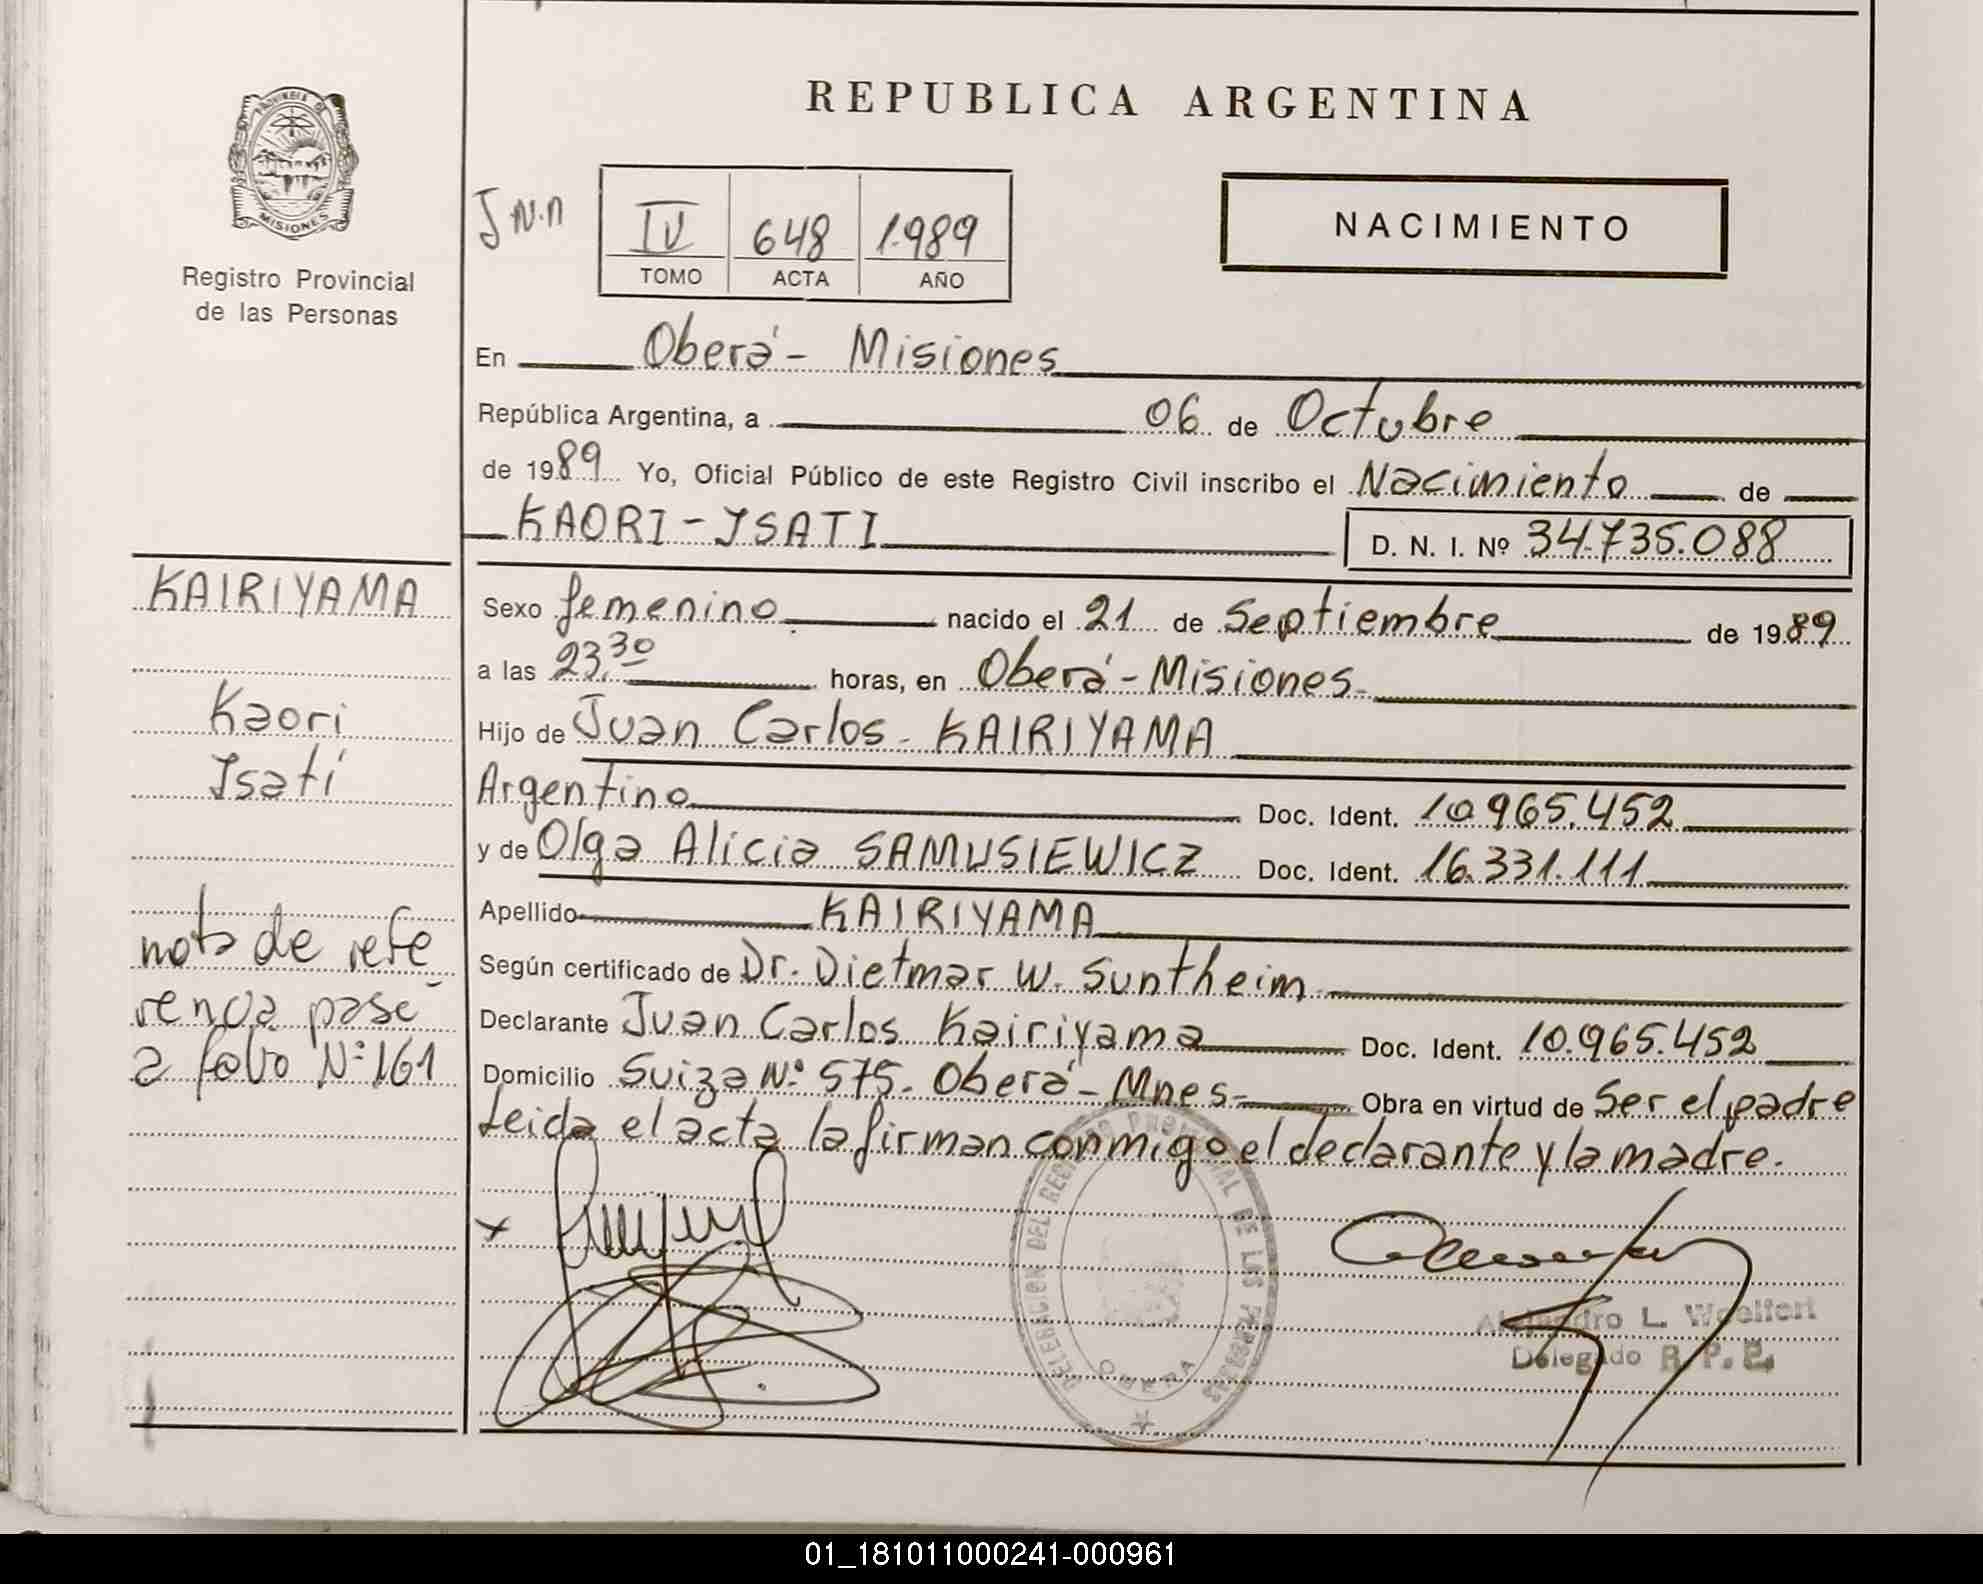 PROVINCIA DE
MISIONES
Registro Provincial
de las Personas
REPUBLICA ARGENTINA
J N.n
IV 648 1.989
TOMO ACTA AÑO
NACIMIENTO
En Oberá - Misiones
República Argentina, a 06 de Octubre
de 1989 Yo, Oficial Público de este Registro Civil inscribo el Nacimiento de
KAORI - ISATI D. N. I. Nº 34.735.088
Sexo femenino nacido el 21 de Septiembre de 1989
a las 23.30 horas, en Oberá - Misiones
Hijo de Juan Carlos - KAIRIYAMA
Argentino Doc. Ident. 10.965.452
y de Olga Alicia SAMUSIEWICZ Doc. Ident. 16.331.111
Apellido KAIRIYAMA
Según certificado de Dr. Dietmar W. Suntheim
Declarante Juan Carlos Kairiyama Doc. Ident. 10.965.452
Domicilio Suiza Nº 575 - Oberá - Mnes - Obra en virtud de Ser el padre
Leida el acta la firman conmigo el declarante y la madre.
KAIRIYAMA
Kaori
Isatí
nota de refe
rencia pase
a folio Nº 161
DELEGACION DEL REGISTRO PROVINCIAL DE LAS PERSONAS
OBERA
Alejandro L. Woelfert
Delegado R. P. P.
01_181011000241-000961